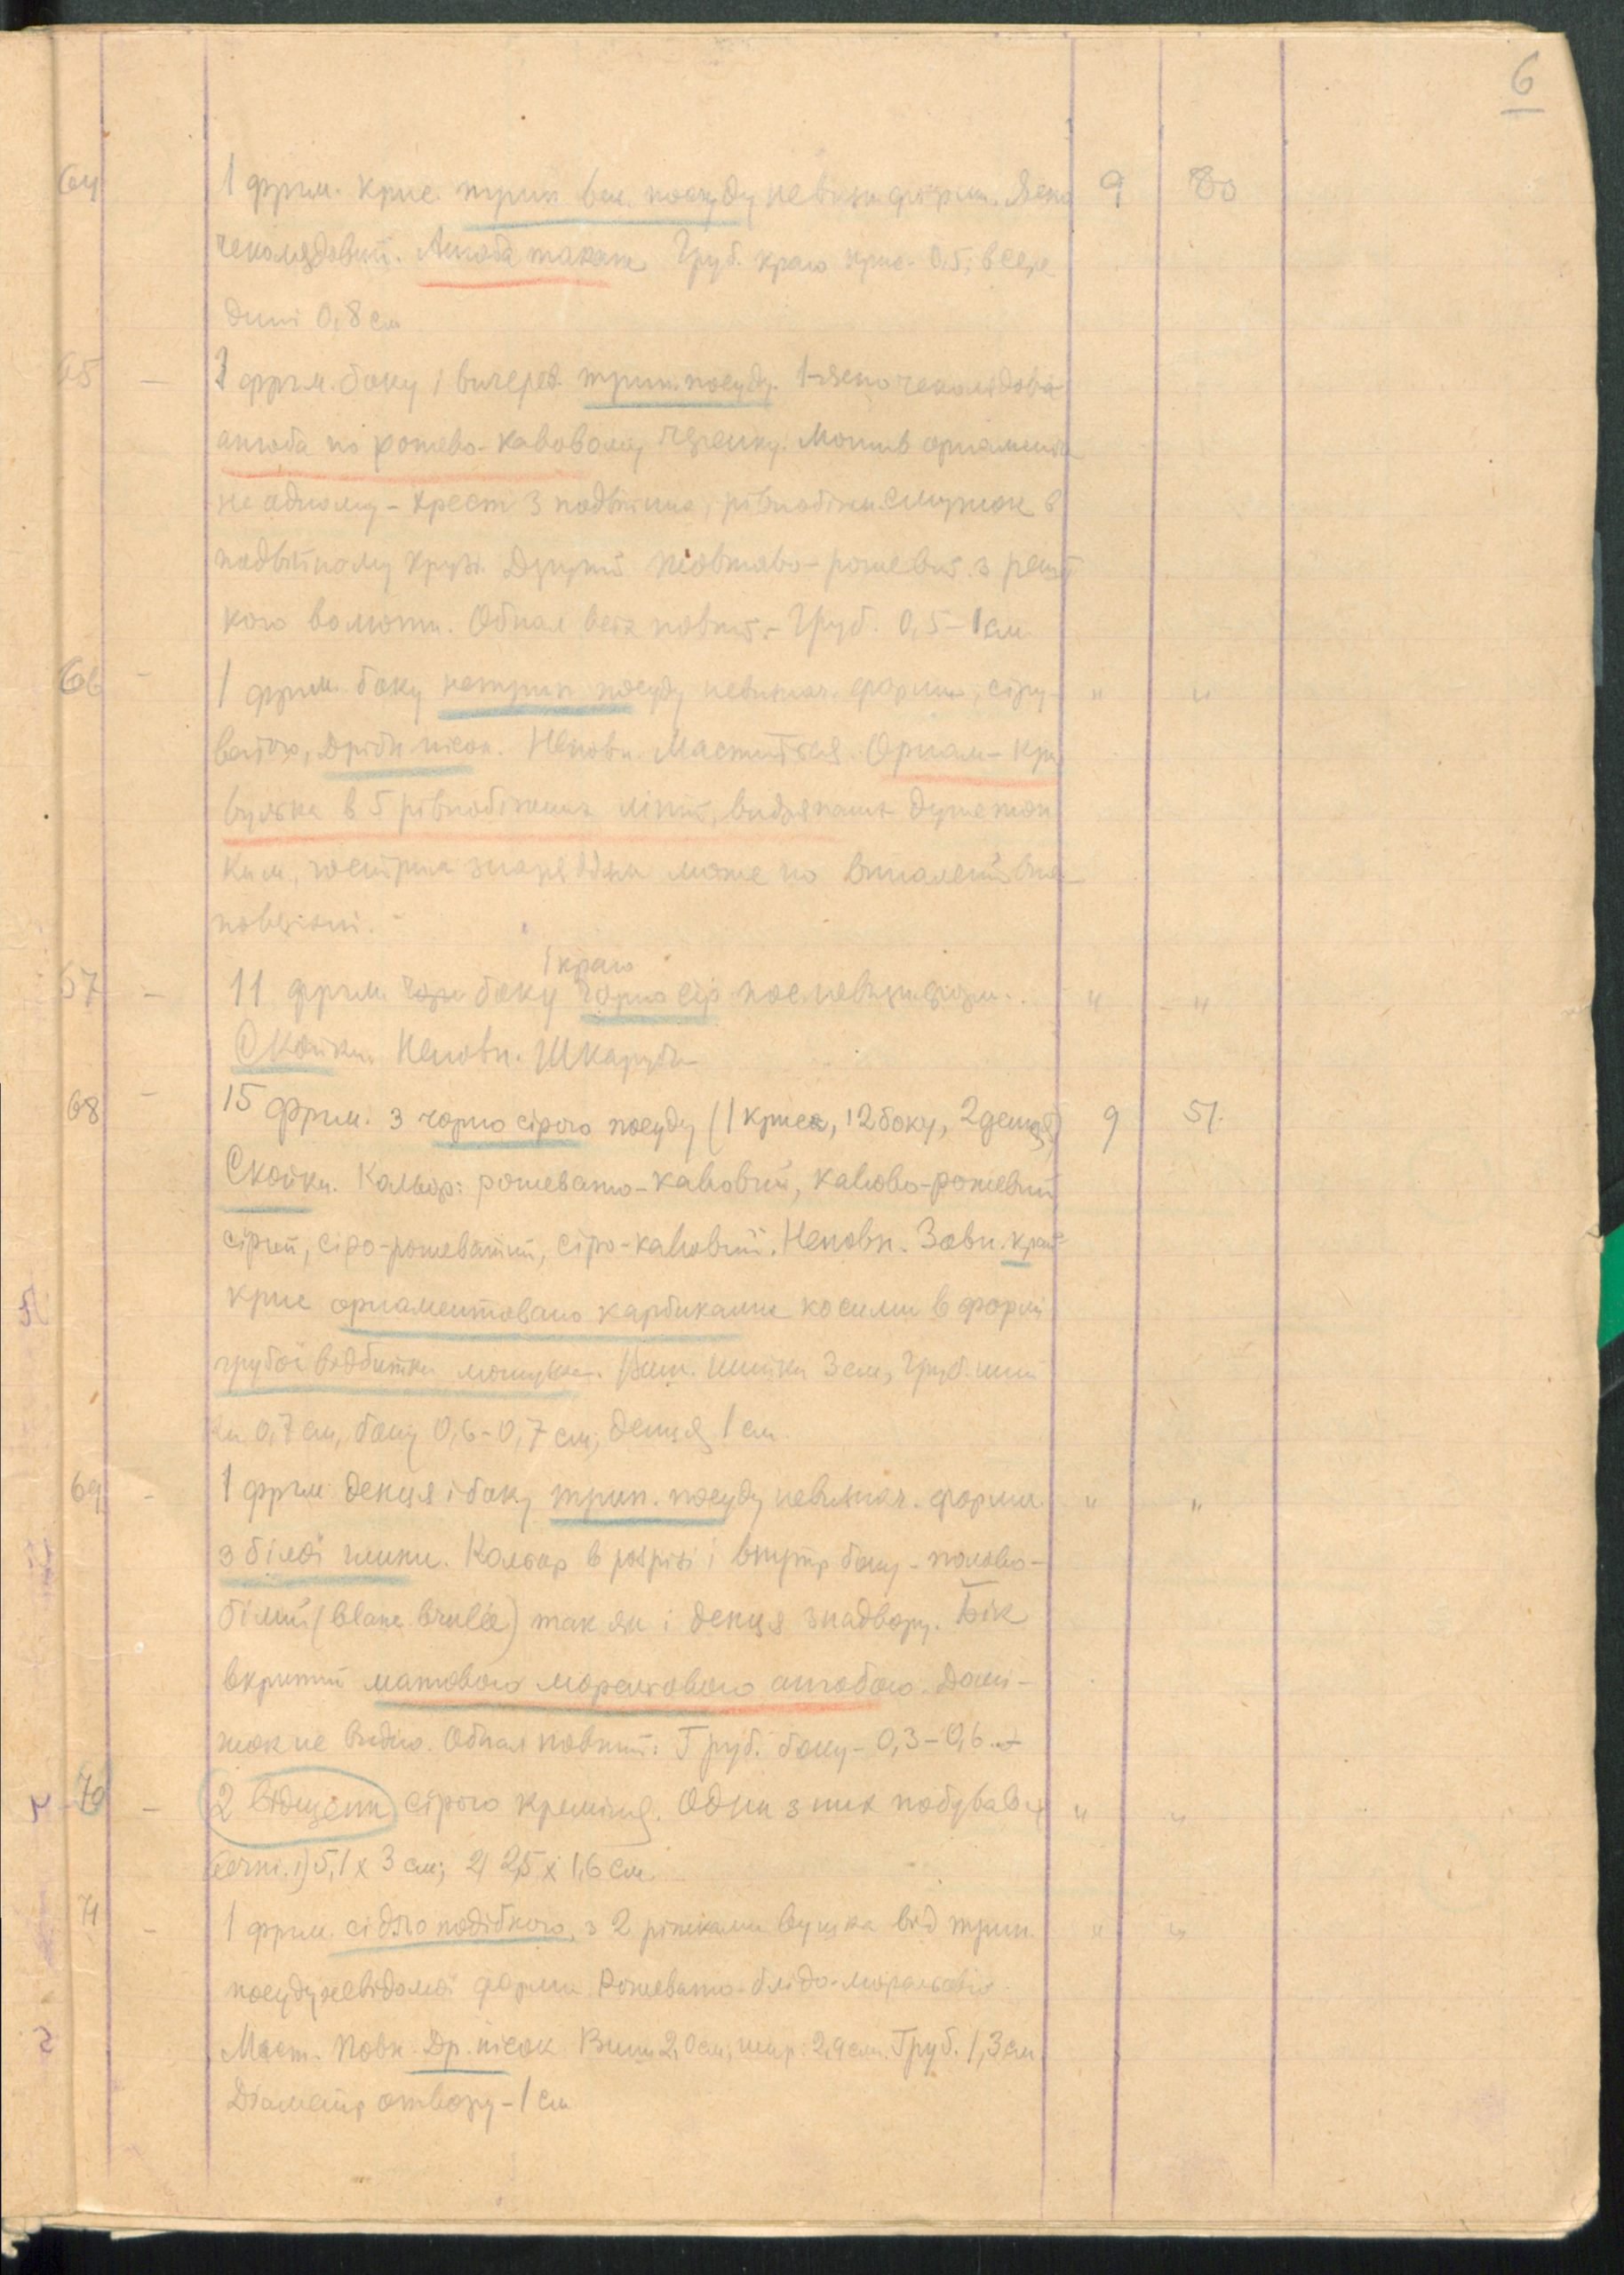 6
64 1 фргм. крис. трип вел. посуду невизн. форми. Ясно 9 80
чеколядовий. Ангоба також Груб. краю крис. 0,5; в сере
дині 0,8 см
65 — фргм. боку і вичеред. трип. посуду. 1-ясно чеколядова
ангоба по рожево-кавовому черепку. Мотив орнамента
на одному - хрест з подвійних, рівнобіжн. смужок в
подвійному крузі. Другий жовтаво-рожевий з
волюти. Обпал всіх повний. - Груб. 0,5-1 см
66 - 1 фргм. боку нетрип посуду невизнач. форми, сіру- " "
ватого, дрібн пісок. Неповн. Маститься. Орнам- кри
вулька в 5 рівнобіжних ліній, видряпаних дуже тон
ким, гострим знаряддям може по
поверхні. -
і краю
67 — 11 фргм. боку чорно сір пос. невизн. форм. " "
Скойки. Неповн. Шкаруб.
68 — 15 фргм. з чорно сірого посуду (1 криса, 12 боку, 2 денця) 9 51.
Скойки. Кольор: рожевато-кавовий, кавово-рожевий
сірий, сіро-рожеватий, сіро-кавовий. Неповн. Зовн. край
крис орнаментовано карбиками косими в формі
грубої відбитки мотузка. Виш. шийки 3 см, Груб. ший
ки 0,7 см, боку 0,6-0,7 см, денця 1 см.
69 - 1 фргм денця і боку трип. посуду невизнач. форми. " "
з білої глини. Кольор в розрізі і внутр боку - полово-
білий (blanc brulée) так як і денця знадвору. Бік
вкритий матовою морельовою ангобою. Домі-
шок не видно. Обпал повний. Груб. боку - 0,3-0,6
70 — 2 відщепи сірого кремінця. Один з них побував в " "
1) 5,1 x 3 см; 2) 2,5 x 1,6 см.
71 - 1 фргм. сідлоподібного, з 2 ріжками вушка від трип. " "
посуду невідомої форми. Рожевато-блідо-морельова.
Маст. Повн. Др. пісок. Виш. 2,0 см, шир. 2,9 см. Груб. 1,3 см
Діаметр отвору - 1 см